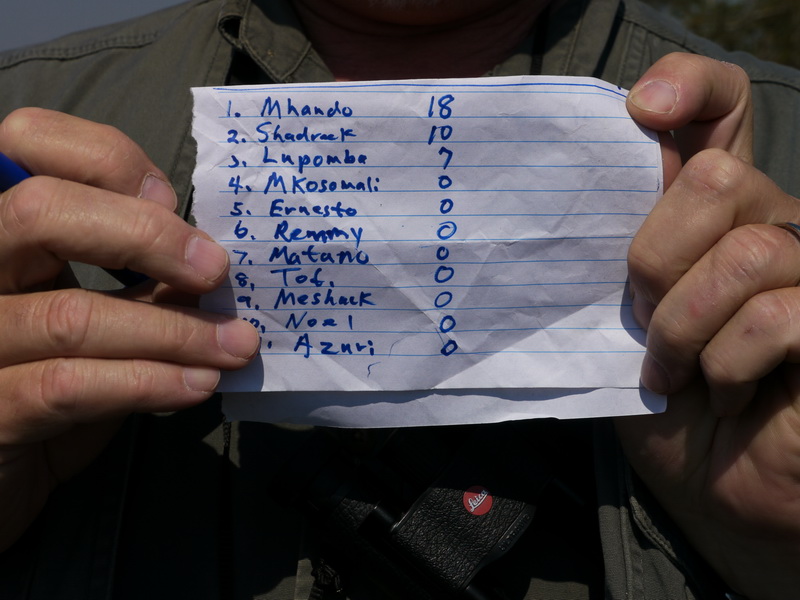 1. Mhando 18
2. Shadreck 10
3. Lupomba 7
4. MKosomali 0
5. Ernesto 0
6. Remmy 0
7. Matano 0
8. Tof. 0
9. Meshack 0
10. Noel 0
Azuri 0
Leica